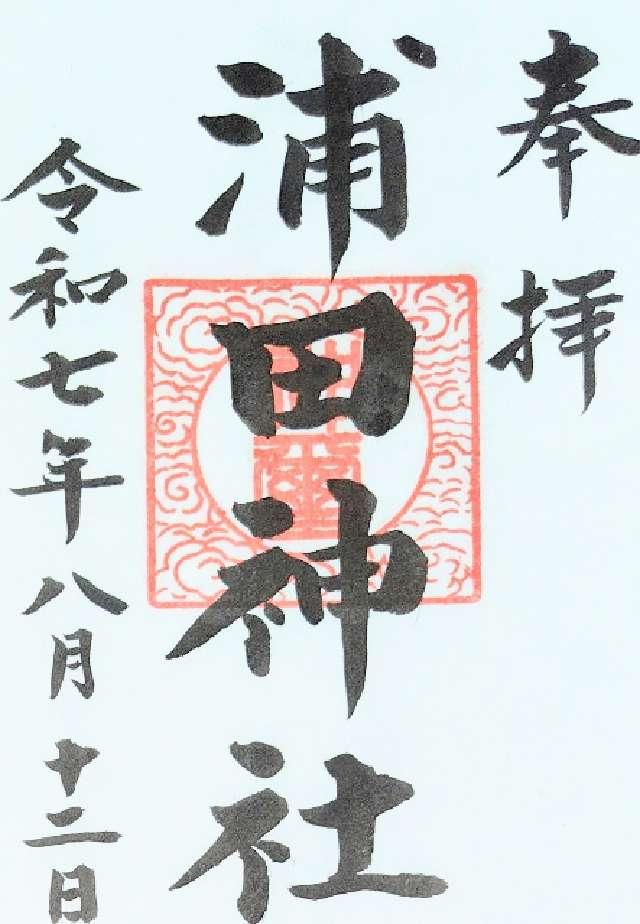 奉拝
浦田神社
令和七年八月十二日